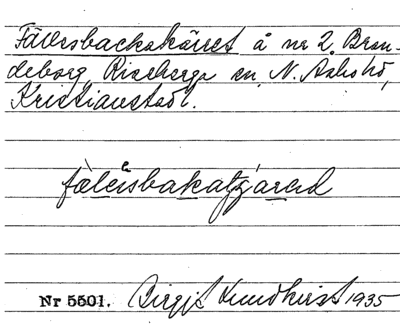 Fällesbackakärret å nr 2 Bran-
deborg, Riseberga sn, N. Åsbo hd,
Kristianstads l.
Nr 5501. Birgit Lundkvist 1935